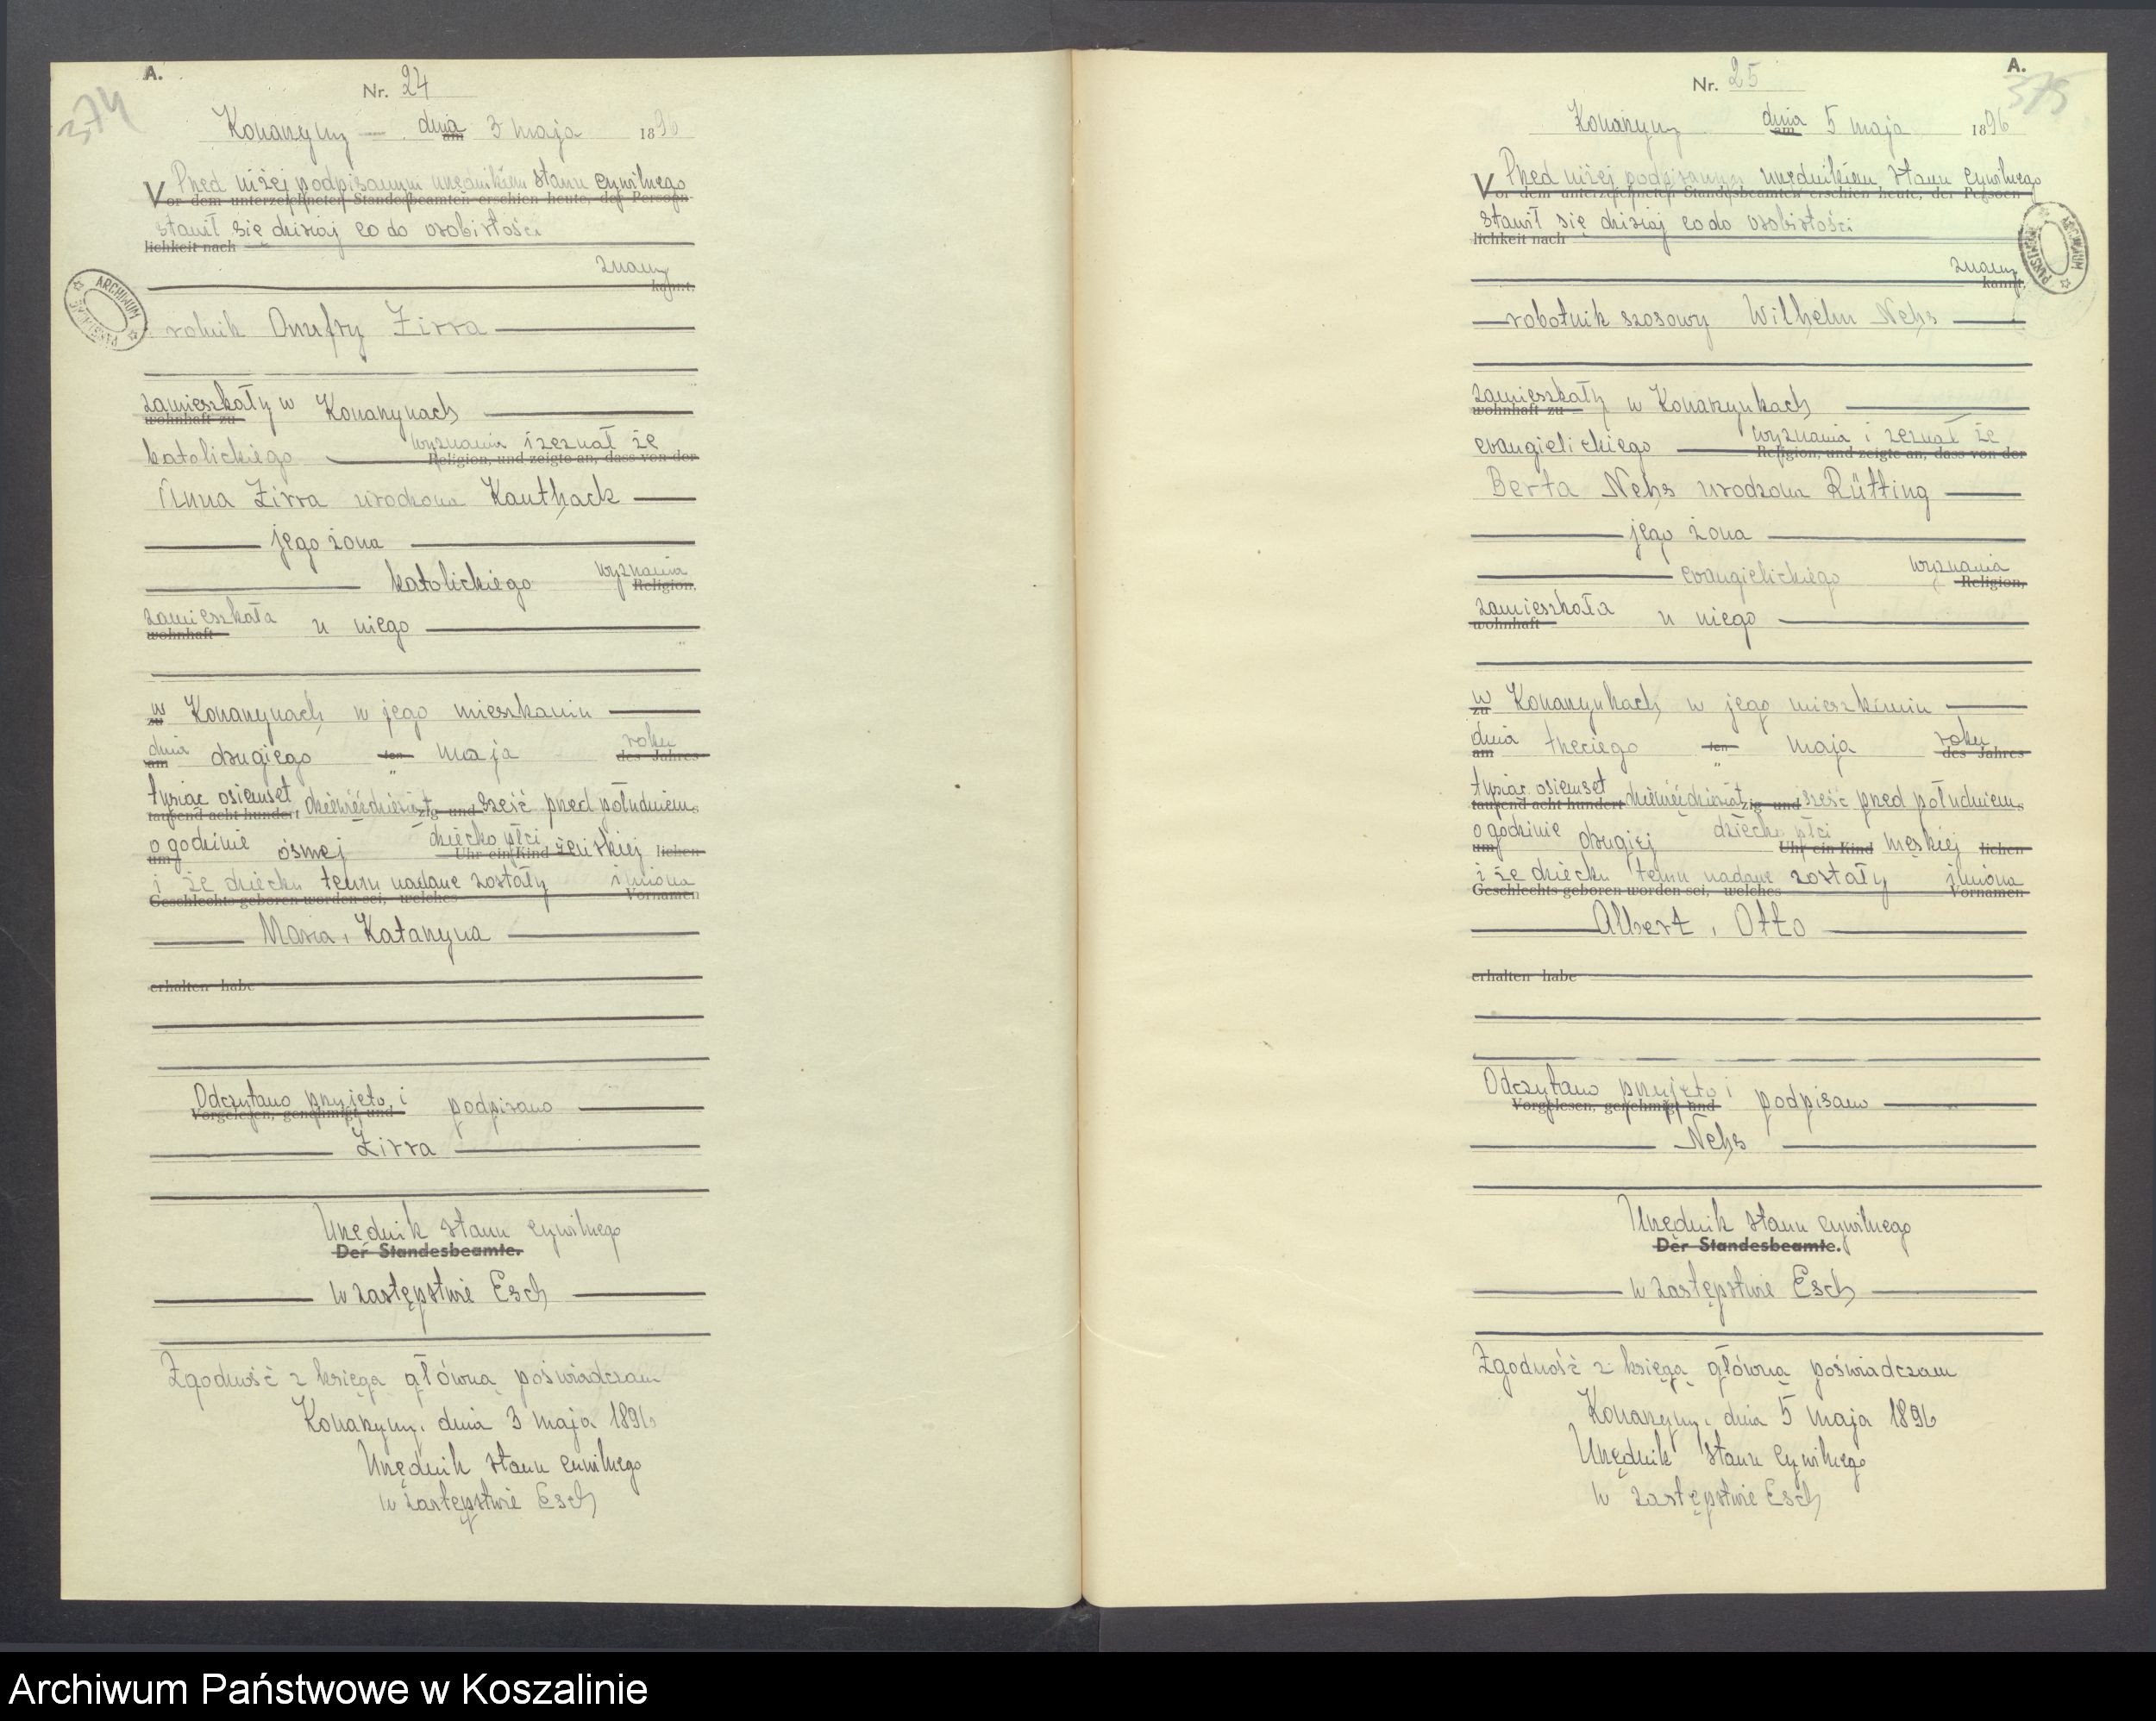 A.
374
Nr. 24
Konarzyny dnia am 3 maja 1896
Przed niżej podpisanym urzędnikiem stanu cywilnego
Vor dem unterzeichneten Standesbeamten erschien heute, der Persoen-
stawił się dzisiaj co do osobistości
lichkeit nach
znany
kannt,
ARCHIWUM PAŃSTWOWE
rolnik Onufry Zirra
zamieszkały w Konarzynach
wohnhaft zu
katolickiego wyznania i zeznał że
Religion, und zeigte an, dass von der
Anna Zirra urodzona Kauthack
jego żona
katolickiego wyznania
Religion,
zamieszkała u niego
wohnhaft
w Konarzynach w jego mieszkaniu
zu
dnia drugiego ten maja roku
am des Jahres
tysiąc osiemset dziewięćdziesiąt zig und sześć przed południem
tausend acht hundert
o godzinie ósmej dziecko płci żeńskiej lichen
um Uhr ein Kind
i że dziecku temu nadane zostały imiona
Geschlechts geboren worden sei, welches Vornamen
Maria, Katarzyna
erhalten habe
Odczytano przyjęto i podpisano
Vorgelesen, genehmigt und
Zirra
Urzędnik stanu cywilnego
Der Standesbeamte.
w zastępstwie Esch
Zgodność z księgą główną poświadczam
Konarzyny, dnia 3 maja 1896
Urzędnik stanu cywilnego
w zastępstwie Esch
A.
375
Nr. 25
Konarzyny dnia am 5 maja 1896
Przed niżej podpisanym urzędnikiem stanu cywilnego
Vor dem unterzeichneten Standesbeamten erschien heute, der Persoen-
stawił się dzisiaj co do osobistości
lichkeit nach
ARCHIWUM PAŃSTWOWE
znany
kannt,
robotnik szosowy Wilhelm Nehs
zamieszkały w Konarzynkach
wohnhaft zu
ewangielickiego wyznania i zeznał że
Religion, und zeigte an, dass von der
Berta Nehs urodzona Rütting
jego żona
ewangielickiego wyznania
Religion,
zamieszkała u niego
wohnhaft
w Konarzynkach w jego mieszkaniu
zu
dnia trzeciego ten maja roku
am des Jahres
tysiąc osiemset dziewięćdziesiąt zig und sześć przed południem
tausend acht hundert
o godzinie drugiej dziecko płci męskiej lichen
um Uhr ein Kind
i że dziecku temu nadane zostały imiona
Geschlechts geboren worden sei, welches Vornamen
Albert, Otto
erhalten habe
Odczytano przyjęto i podpisano
Vorgelesen, genehmigt und
Nehs
Urzędnik stanu cywilnego
Der Standesbeamte.
w zastępstwie Esch
Zgodność z księgą główną poświadczam
Konarzyny, dnia 5 maja 1896
Urzędnik stanu cywilnego
w zastępstwie Esch
Archiwum Państwowe w Koszalinie